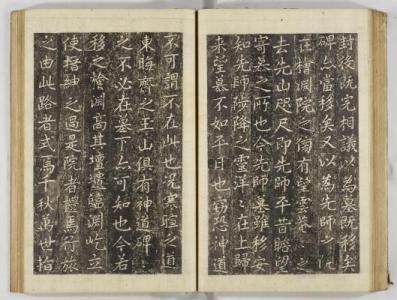 封後既完相議以爲墓既移矣
碑亦當移矣又以爲先師之
檜淵院之傍有望雲菴之
去先山咫尺即先師平昔瞻望
寄慕之所也今先師墓雖移安
知先師陟降之靈洋洋在上歸
来望墓不如平日也竊恐神道
不可謂不在此也況寒暄之道
東晦齋之玉山俱有神道碑
之不必在墓下亦可知也今若
移之檜淵高其壇遺臨淵屹立
使搢紳之過是院者膽焉行旅
之由此路者式焉千秋萬世指